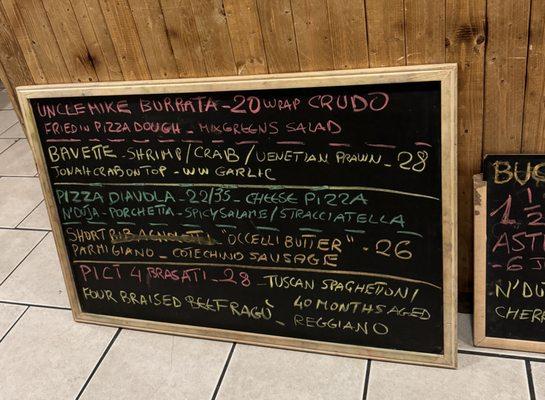 UNCLE MIKE BURRATA - 20 WRAP CRUDO
FRIED IN PIZZA DOUGH - MIX GREENS SALAD
BAVETTE - SHRIMP / CRAB / VENETIAN PRAWN - 28
JONAH CRAB ON TOP - WW GARLIC
PIZZA DIAVOLA - 22/35 - CHEESE PIZZA
N'DUJA - PORCHETTA - SPICY SALAME / STRACCIATELLA
SHORT RIB "OCCELLI BUTTER" - 26
PARMIGIANO - COTECHINO SAUSAGE
PICI 4 BRASATI - 28 - TUSCAN SPAGHETTONI /
FOUR BRAISED RAGÙ - 40 MONTHS AGED
REGGIANO
N'DU
CHER